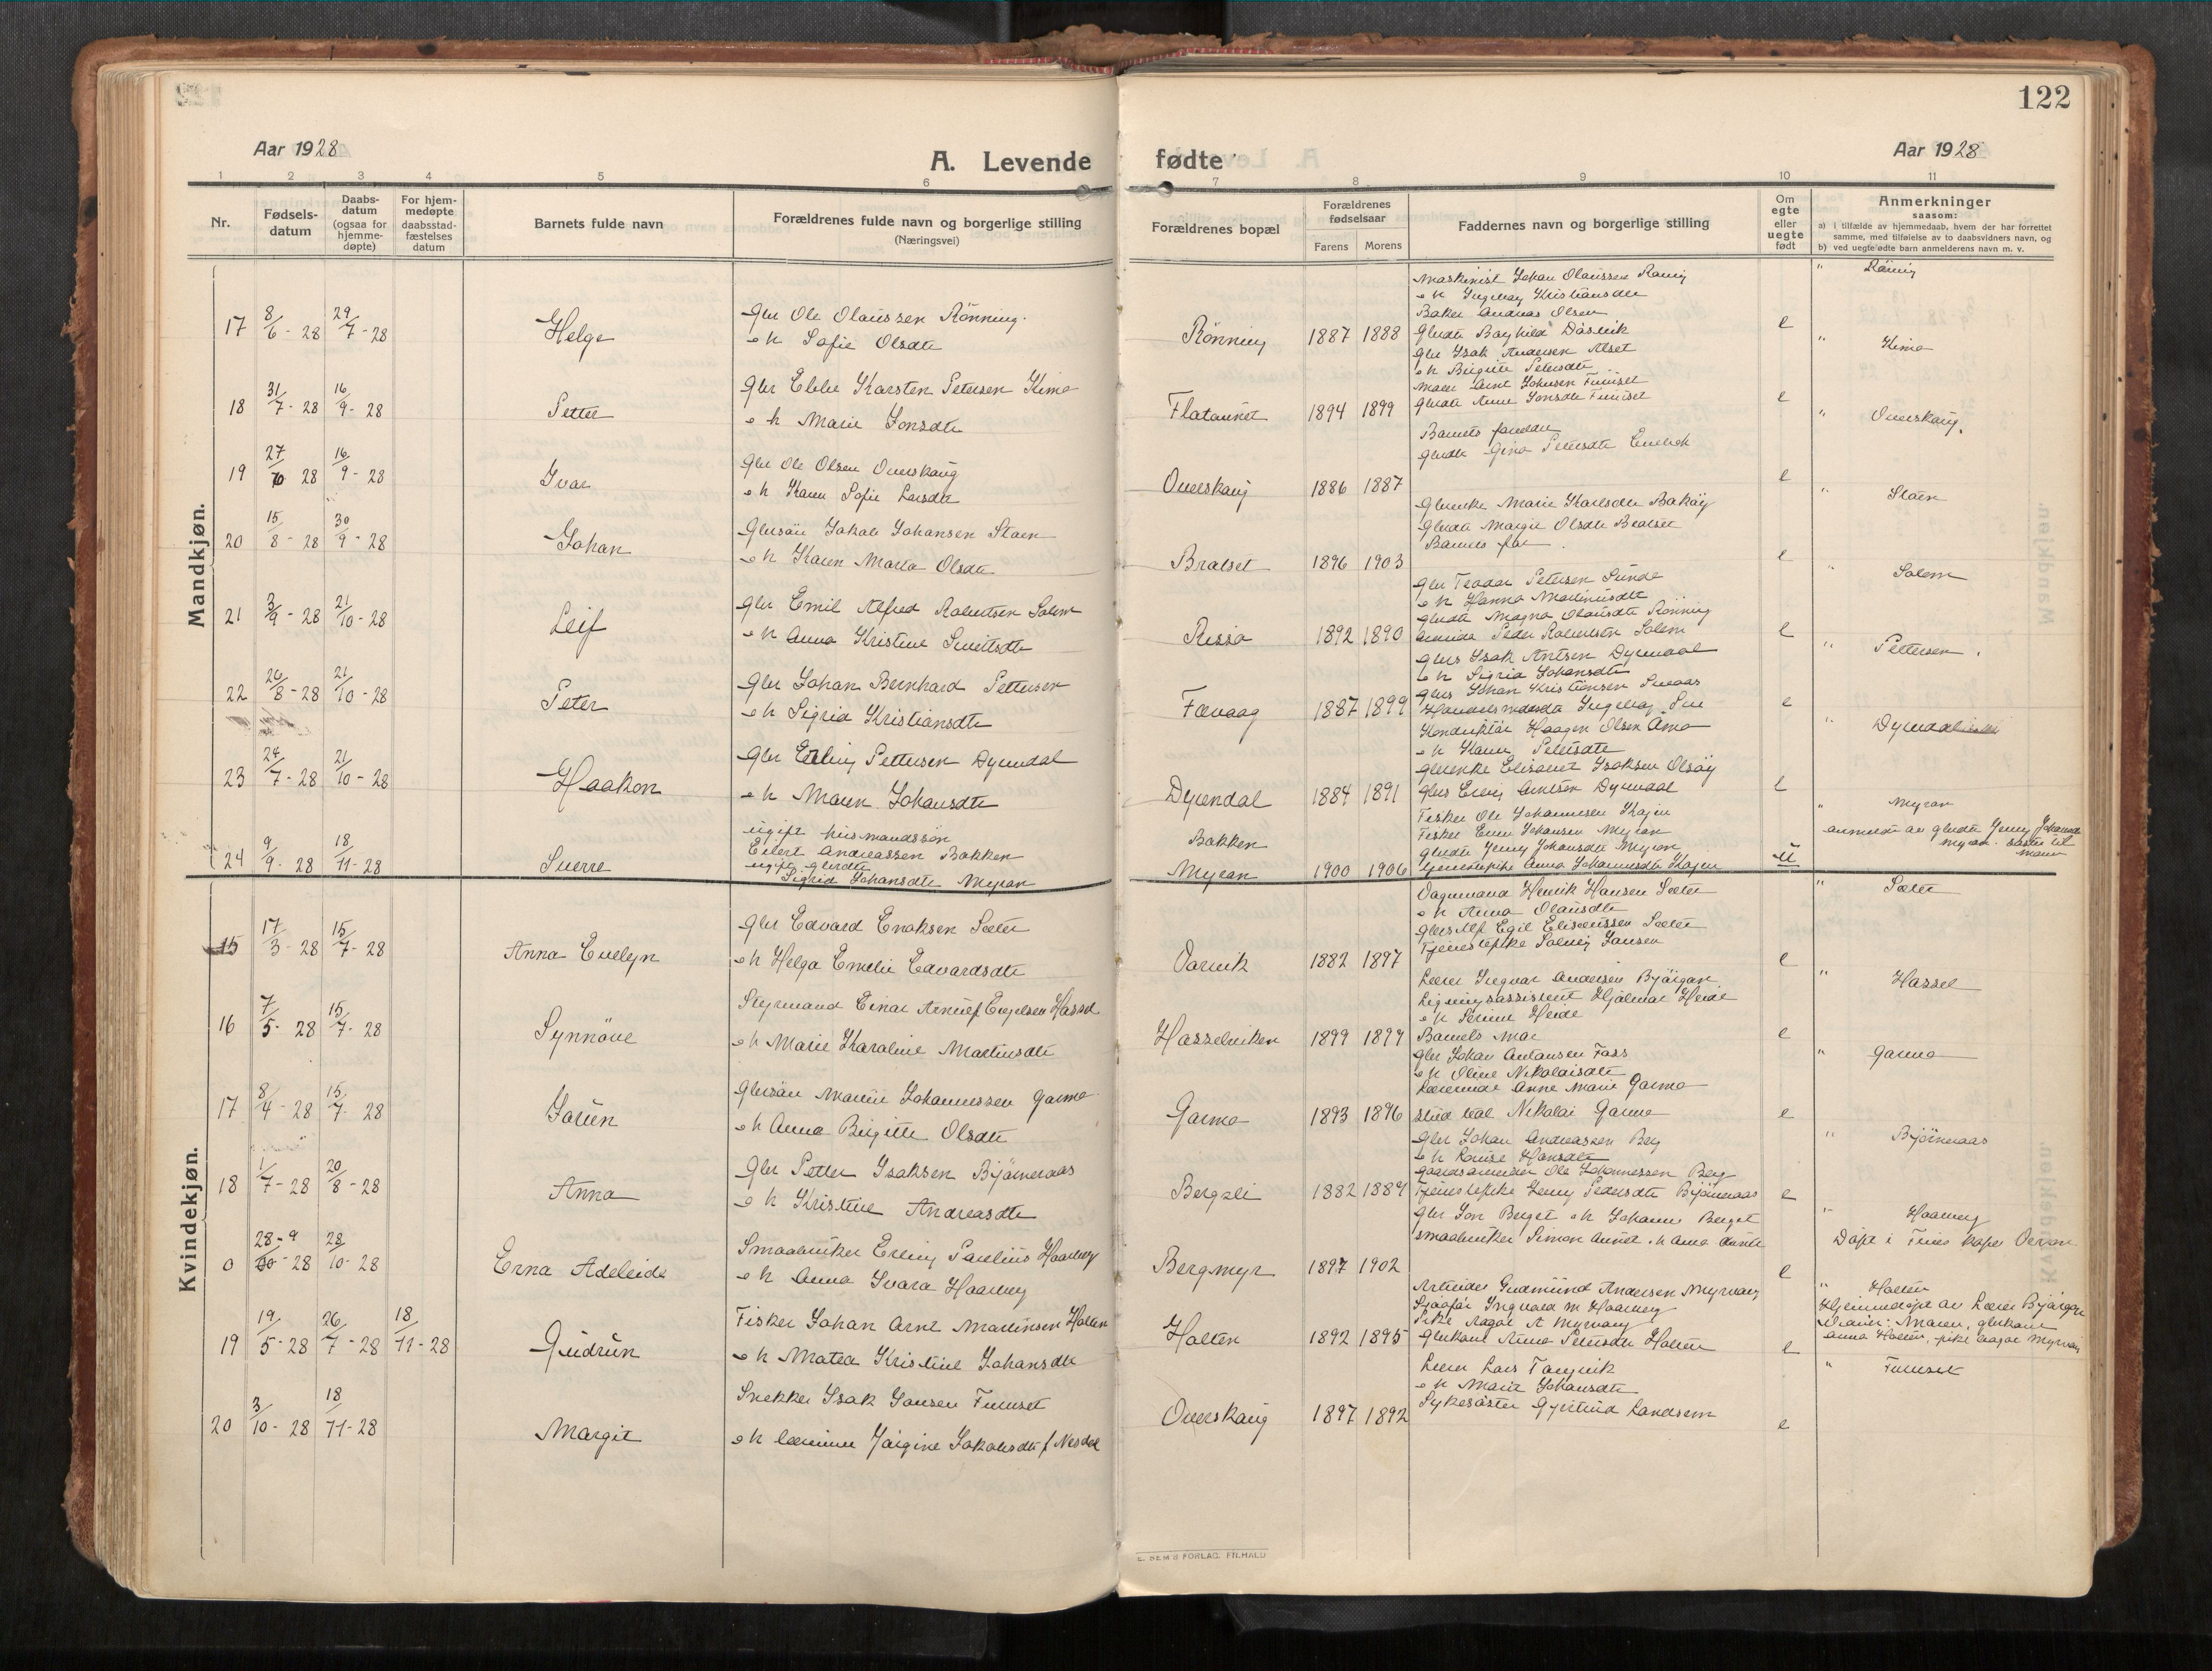 122
Aar 1928
A. Levende fødte
Aar 1928
1 2 3 4 5 6 7 8 9 10 11
Nr.
Fødsels-datum
Daabs-datum (ogsaa for hjemme-døpte)
For hjem-medøpte daabsstad-fæstelses datum
Barnets fulde navn
Forældrenes fulde navn og borgerlige stilling
(Næringsvei)
Forældrenes bopæl
Forældrenes fødselsaar
Farens Morens
Faddernes navn og borgerlige stilling
Om egte eller uegte født
Anmerkninger
saasom:
a) i tilfælde av hjemmedaab, hvem der har forrettet samme, med tilføielse av to daabsvidners navn, og
b) ved uegte fødte barn anmelderens navn m. v.
Mandkjøn.
17 8/6 - 28 29/7 - 28 Helge
Gbr Ole Olaussen Rönning.
o h Sofie Olsdtr
Rönning 1887 1888
Maskinist Johan Olaussen Rönning
o h Ingeborg Kristiansdtr
Baker Andreas Olsen
Gbrdtr Borghild Dåsvik
Gbr Isak Andersen Alset
o h Birgitte Petersdtr
e
" Röning
18 31/7 - 28 16/9 - 28 Petter
Gbr Ebbe Karsten Petersen Kimo
o h Marie Jonsdtr
Flataunet 1894 1899
Maler Arnt Johnsen Furuset
Gbrdtr Anne Jonsdtr Furuset
e
" Kimo
19 27/6 28 16/9 - 28 Ivar
Gbr Ole Olsen Overskaug
o h Karen Sofie Larsdtr
Overskaug 1886 1887
Barnets foreldre
Gbrdtr Gina Petersdtr
e
" Overskaug.
20 15/8 - 28 30/9 - 28 Johan
Gbrsön Jakob Johansen Stöen
o h Karen Marta Olsdtr
Bratset 1896 1903
Gbrenke Marie Karlsdtr Baköy
Gbrdtr Margit Olsdtr Bratset
Barnets far.
e
" Stöen
21 3/9 - 28 21/10 - 28 Leif
Gbr Emil Alfred Robertsen Solem
o h Anna Kristine
Rissa 1892 1890
Gbr Teodor Petersen Sunde
o h Hanna Martinusdtr
Gbrdtr Magna Olausdtr Rönning
Peder Robertsen Solem
e
" Solem
22 20/8 - 28 21/10 - 28 Peter
Gbr Johan Bernhard Pettersen
o h Sigrid Kristiansdtr
Fævaag 1887 1899
Gbrs Isak Antsen Dyrendal
o h Sigrid Johansdtr
Gbrs Johan Kristiansen
Ingeborg
e
" Pettersen.
23 24/7 - 28 21/10 - 28 Haakon
Gbr Erling Pettersen Dyrendal
o h Maren Johansdtr
Dyrendal 1884 1891
Konduktör Haagen Olsen Amo
o h Karen Petersdtr
Gbrenke Elisabet Isaksen Olsöy
Gbrs Antsen Dyrendal
e
" Dyrendal
24 9/9 - 28 18/11 - 28 Sverre
ugift husmandssön
Edert Andreassen Bakken
ugift gbrdtr
Sigrid Johansdtr Myran
Bakken
Myran 1900 1906
Fisker Ole Johannesen
Fisker Johansen Myran
Gbrdtr Jenny Johansdtr Myran
Tjenestepike Anna Johannesdtr
u
" Myran
anmeldt av gbrdtr Jenny Johansdtr
Myran. söster til
moren
Kvindekjøn.
15 17/3 - 28 15/7 - 28 Anna Evelyn
Gbr Edvard Enoksen Sæter
o h Helga Emelie Edvardsdtr
Oarvik 1882 1897
Dagmand Henrik Hansen Sæter
o h Anna Olausdtr
Gbrs Alf Egil Eliseussen Sæter
Tjenestepike Solveig Jansen
e
" Sæter
16 7/5 - 28 15/7 - 28 Synnöve
Styrmand Einar Arnulf Engelsen Hassel
o h Marie Karoline Martinsdtr
Hasselvikken 1899 1899
Lærer Ingvar Andersen Björgan
Ligningsassistent Hjalmar Heide
o h Serine Heide
Barnets mor
e
" Hassel
17 8/4 - 28 15/7 28 Jorun
Gbrsön Marius Johannessen Garmo
o h Anna Birgitte Olsdtr
Garmo 1893 1896
Gbr Johan Antonsen Foss
o h Oline Nikolaisdtr
Lærerinde Anne Marie Garmo
stud real Nikolai Garmo
e
" Garmo
18 1/7 - 28 20/8 - 28 Anna
Gbr Petter Isaksen Björneraas
o h Kristine Andreasdtr
Bergsli 1882 1889
Gbr Johan Andreassen Berg
o h Louise Hansdtr
Gaardsarbeider Ole Johannessen Berg
Tjenestepike Jenny Pedersdtr Björneraas
e
" Björneraas
0 28-9 - 28 28/10 - 28 Erna Adeleide
Smaabruker Erling Paulius Haarberg
o h Anna Ivara Haarberg
Bergmyr 1897 1902
Gbr Jon Berget o h Johanne Berget
Smaabruker Simon Aunet o h Anna Aunet
e
" Haarberg
Döpt i
19 19/5 - 28 26/7 - 28 18/11 - 28 Gudrun
Fisker Johan Arnt Martinsen Holten
o h Matea Kristine Johansdtr
Holten 1892 1895
Arbeider Gudmund Andersen Myrvang
Sjåfør Ingvald M Haarberg
Pike Aagot A Myrvang
Gbrkone Anna Petersdtr Holten
e
" Holten
Hjemmedöpt av Lærer Björgan
Moren, gbrkone
Anna Holten, pike Aagot Myrvang
20 3/10 - 28 18/11 - 28 Margit
Snekker Isak Jansen Furuset
o h Jörgine Jakobsdtr f Nesdal
Overskaug 1897 1892
Lærer Lars Tangvik
o h Marit Johansdtr
Sykesöster Gjertrud Landsem
e
" Furuset
E. SEM'S FORLAG. FR.HALD